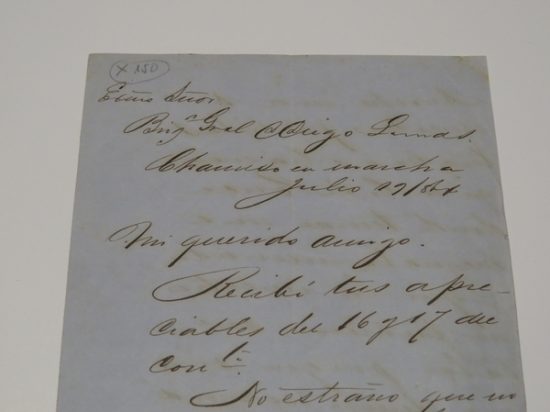 x 150
Exmo Señor
Brigr Gral Don Diego Lamas.
en marcha
Julio 19/
Mi querido amigo.
Recibí tus apre-
ciables del 16 y 17 del
corrte.
No estraño que un